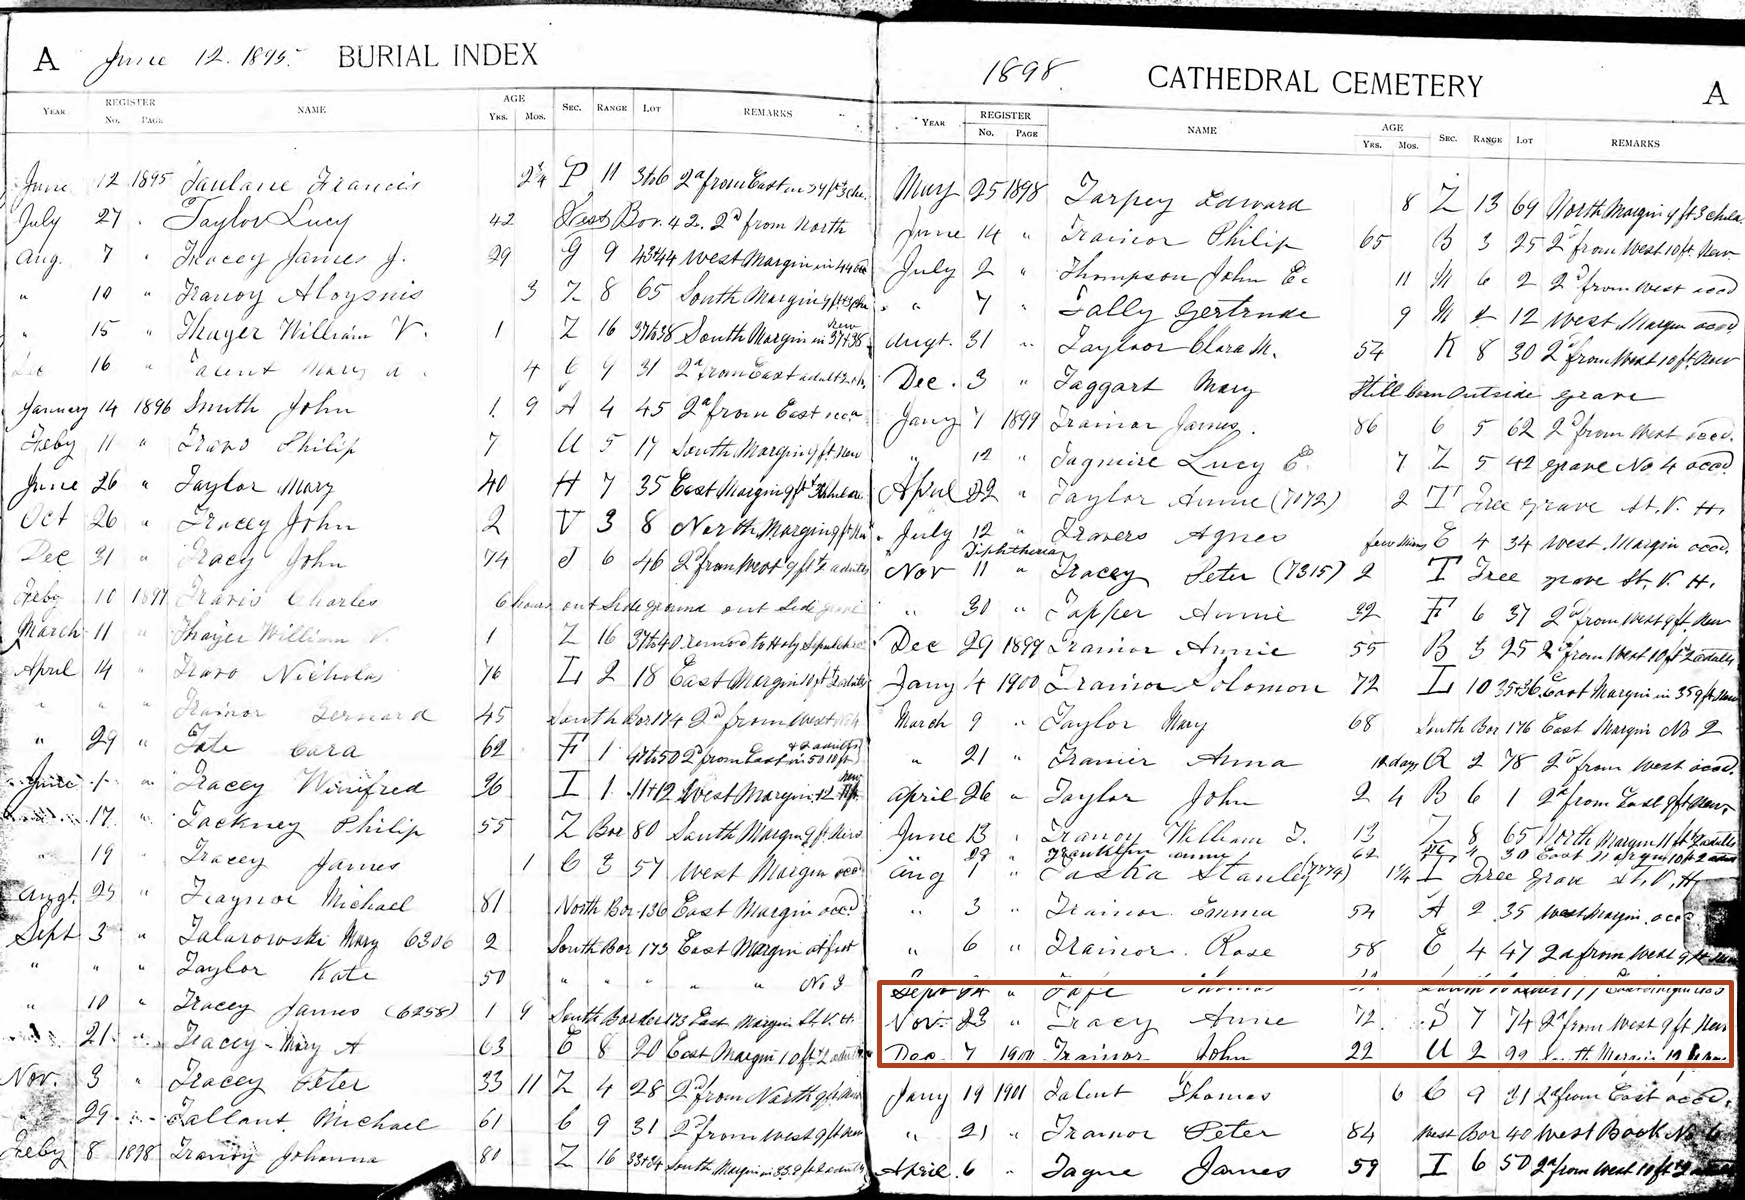 A June 12. 1895. BURIAL INDEX
YEAR REGISTER No. PAGE NAME AGE YRS. MOS. SEC. RANGE LOT REMARKS
June 12 1895 Taulane Francis P 11 3to6 2d from East in
July 27 " Taylor Lucy 42 East Bor. 42. 2d from North
Aug. 7 " Tracey James J. 29 G 9 43+44 West Margin in 44 occ
" 10 " Tranoy Aloysius 3 Z 8 65 South Margin 9 ft +3 chil
" 15 " Thayer William V. 1 Z 16 37to38 South Margin in 37+38 new
Dec 16 " Talent Mary A. 4 C 9 31 2d from East adult
January 14 1896 Smith John 1. 9 A 4 45 2d from East occd
Feby 11 " Travo Philip 7 U 5 17 South Margin 9 ft. New
June 26 " Taylor Mary 40 H 7 35 East Margin 9 ft
Oct 26 " Tracey John 2 V 3 8 North Margin 9 ft New
Dec 31 " Tracy John 74 J 6 46 2d from West 9 ft 2 adults
Feby 10 1897 Travis Charles 6 hours out Side ground out Side grave
March 11 " Thayer William V. 1 Z 16 37to40 removed to Holy Sepulchre
April 14 " Travo Nicholas 76 L 2 18 East Margin 10 ft 2 adults
" " " Trainor Bernard 45 South Bor 174 2d from West No 4
" 29 " Tate Cara 62 F 1 47to50 2d from East in 50 10 ft + 2 adults
June 1 " Tracey Winifred 36 I 1 11+12 West Margin in 12 new
17 " Tackney Philip 55 Z Bor 80 South Margin 9 ft New
" 19 " Tracey James 1 C 3 57 West Margin occd
Augt. 25 " Traynor Michael 81 North Bor 136 East Margin occd
Sept 3 " Talarowski Mary 6306 2 South Bor 173 East Margin at foot
" " " Taylor Kate 50 " " " " No 3
" 10 " Tracey James (6258) 1 9 South Border 173 East Margin St. V. H.
21 " Tracey Mary A 63 E 8 20 East Margin 10 ft 2 adults
Nov. 3 " Tracey Peter 33 11 Z 4 28 2d from North 9 ft New
29 " Tallant Michael 61 C 9 31 2d from West 9 ft New
Feby 8 1898 Tranoy Johanna 80 Z 16 33+34 South Margin in 33. 9 ft 2 adults
1898. CATHEDRAL CEMETERY A
YEAR REGISTER No. PAGE NAME AGE YRS. MOS. SEC. RANGE LOT REMARKS
May 25 1898 Tarpey Edward 8 Z 13 69 North Margin 9 ft 3 chils
June 14 " Trainor Philip 65 B 3 25 2d from West 10 ft. New
July 2 " Thompson John E. 11 M 6 2 2d from West occd
" 7 " Tally Gertrude 9 M 2 12 West Margin occd
Augt. 31 " Tayloor Clara M. 54 K 8 30 2d from West 10 ft. New
Dec. 3 " Taggart Mary Still born Outside grave
Jany 7 1899 Trainor James. 86 C 5 62 2d from West occd.
" 12 " Tagmire Lucy E. 7 Z 5 42 grave No 4 occd.
April 22 " Taylor Annie (7072) 2 T Free grave St. V. H.
July 12 " Travers Agnes few Mins E 4 34 West Margin occd.
Nov 11 " Diphtheria Tracey Peter (7315) 2 T Free grave St. V. H.
" 30 " Tapper Annie 32 F 6 37 2d from West 9 ft. New
Dec 29 1899 Trainor Annie 55 B 3 25 2d from West 10 ft 2 adults
Jany 4 1900 Trainor Solomon 72 L 10 35+36 East Margin in 35 9 ft. New
March 9 " Taylor Mary 68 South Bor 176 East Margin No 2
" 21 " Tranier Anna 12 days R 2 78 2d from West occd.
April 26 " Taylor John 2 4 B 6 1 2d from East 9 ft. New
June 13 " Tranoy William T. 13 Z 8 65 North Margin 11 ft 2 adults
27 " 62 30 East Margin 10 ft 2 adults
Aug 1 " Taska Stanley (7774) 1 1/4 I Free grave St. V. H.
" 3 " Trainor Emma 54 A 2 35 West Margin. occd
" 6 " Trainor. Rose 58 E 4 47 2d from West 9 ft New
Sept 24 " Thomas
Nov. 23 " Tracy Anne 72. S 7 74 2d from West 9 ft New
Dec 7 1900 Trainor John 22 U 2 99 Margin
Jany 19 1901 Talent Thomas 6 C 9 31 2d from East occd.
" 21 " Trainor Peter 84 West Bor 40 West Book No 6
April. 6 " Tague James 59 I 6 50 2d from West 10 ft 2 adults